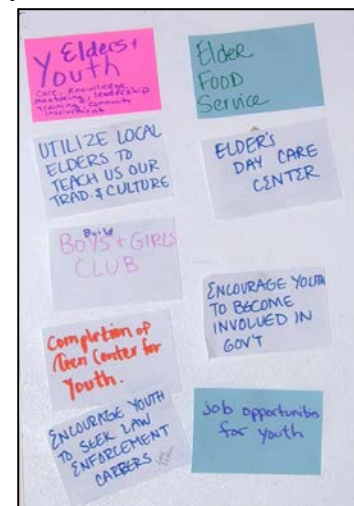 Elders +
Youth
Care, Knowledge,
mentoring, leadership
training, community
involvement
UTILIZE LOCAL
ELDERS TO
TEACH US OUR
TRAD. & CULTURE
Build
BOYS + GIRLS
CLUB
Completion of
Teen Center for
Youth.
ENCOURAGE YOUTH
TO SEEK LAW
ENFORCEMENT
CAREERS
Elder
FOOD
Service
ELDER'S
DAY CARE
CENTER
ENCOURAGE YOUTH
TO BECOME
INVOLVED IN
GOV'T
job opportunities
for youth